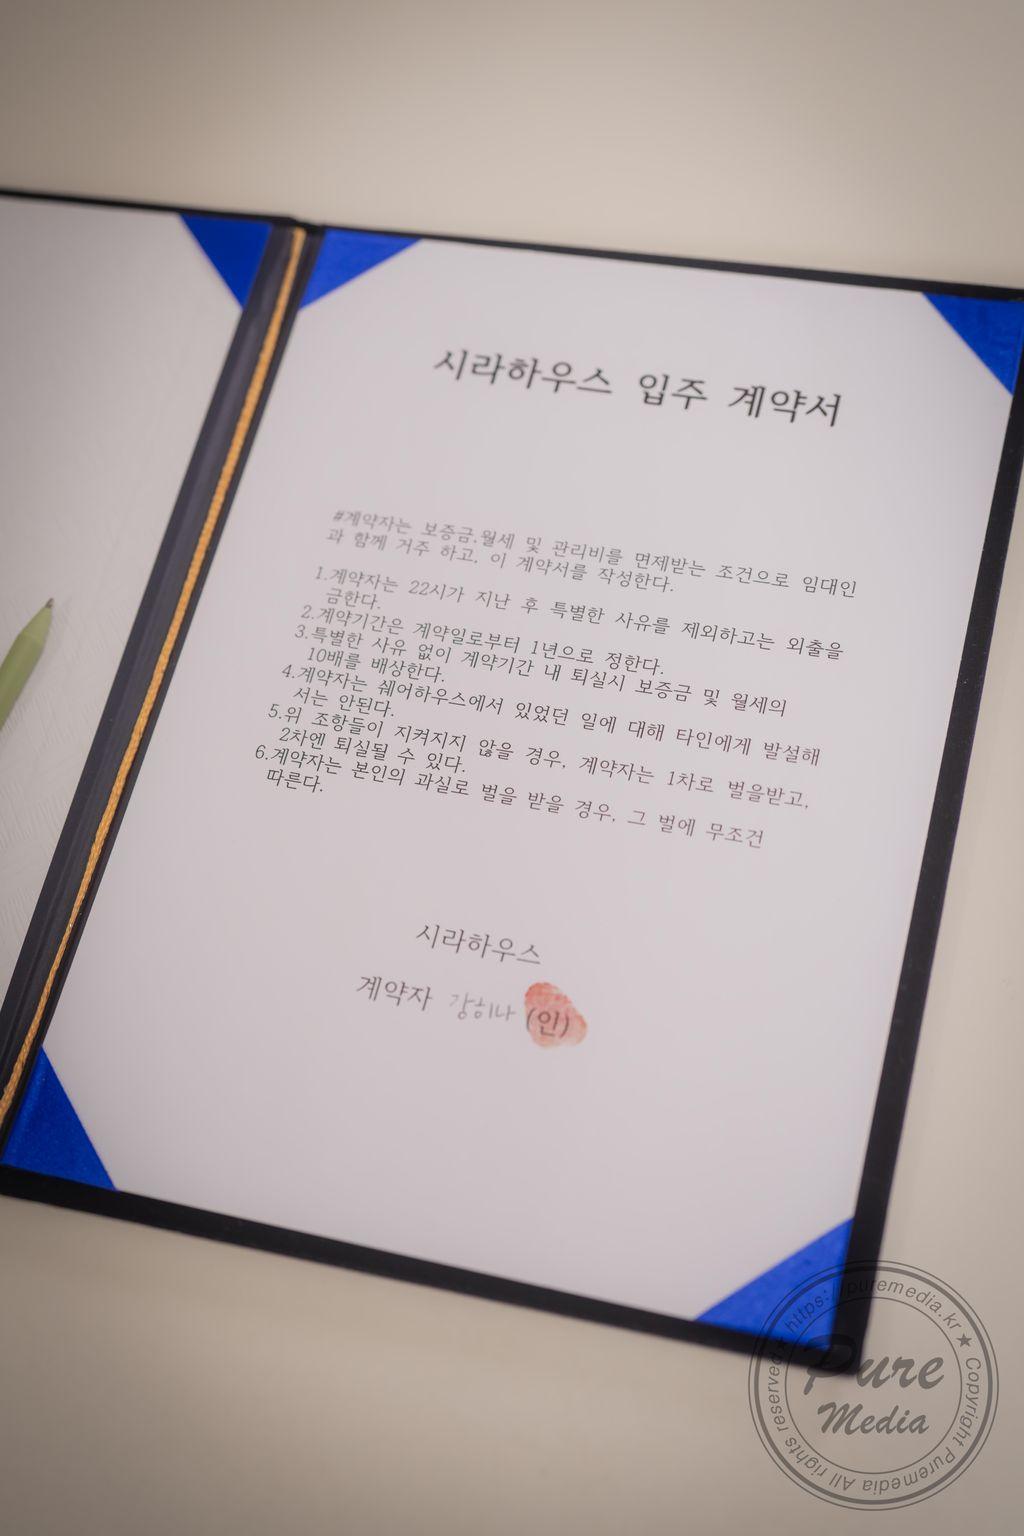 시라하우스 입주 계약서
#계약자는 보증금.월세 및 관리비를 면제받는 조건으로 임대인
과 함께 거주 하고, 이 계약서를 작성한다.
1.계약자는 22시가 지난 후 특별한 사유를 제외하고는 외출을
금한다.
2.계약기간은 계약일로부터 1년으로 정한다.
3.특별한 사유 없이 계약기간 내 퇴실시 보증금 및 월세의
10배를 배상한다.
4.계약자는 쉐어하우스에서 있었던 일에 대해 타인에게 발설해
서는 안된다.
5.위 조항들이 지켜지지 않을 경우, 계약자는 1차로 벌을받고,
2차엔 퇴실될 수 있다.
6.계약자는 본인의 과실로 벌을 받을 경우, 그 벌에 무조건
따른다.
시라하우스
계약자 강히나 (인)
https://puremedia.kr ★ Copyright Puremedia All rights reserved ★
Pure
Media